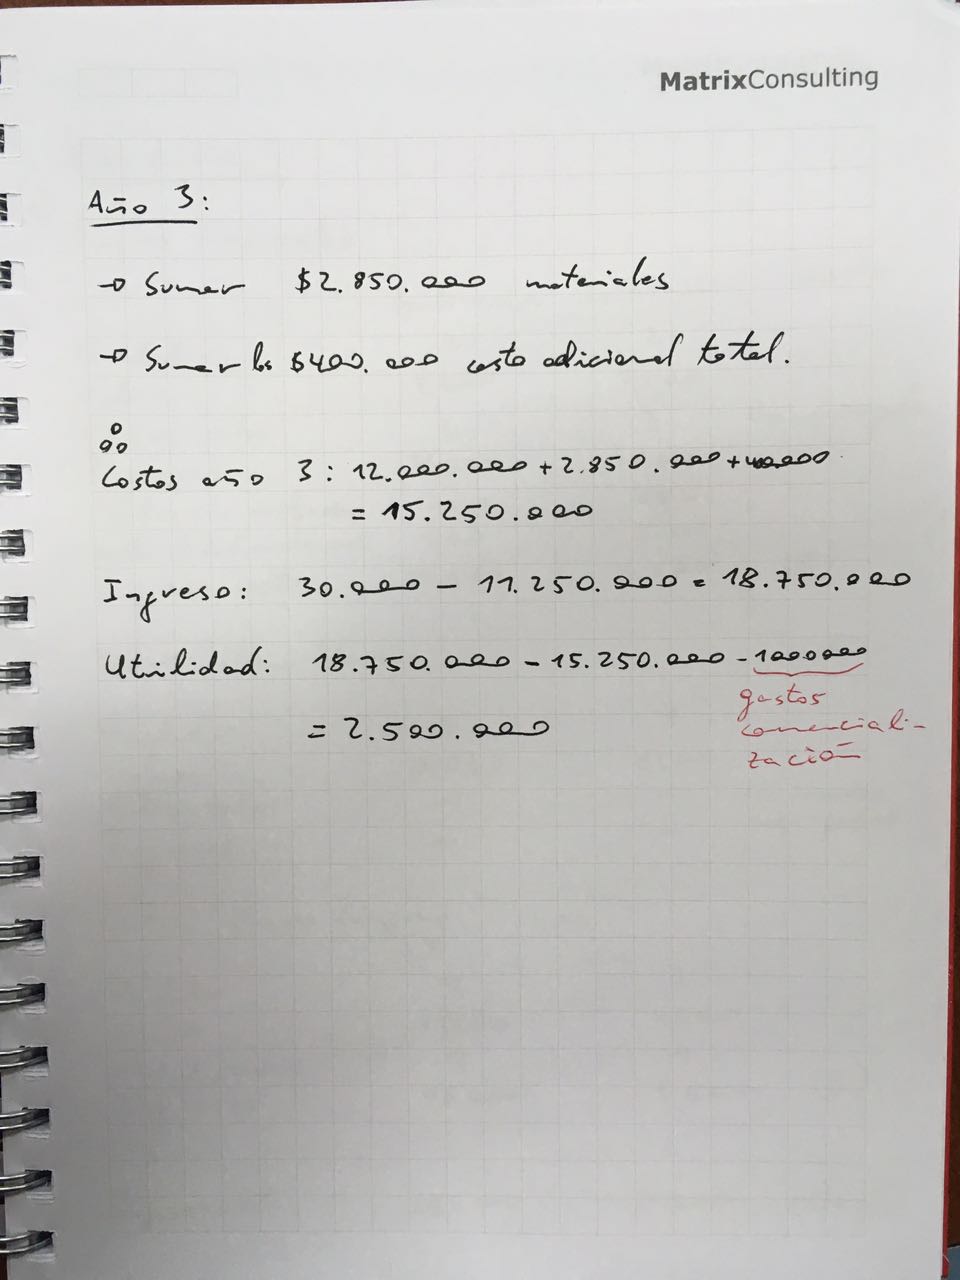 MatrixConsulting
Año 3:
→ Sumar $2.850.000 materiales
→ Sumar los $400.000 costo adicional total.
Costos año 3: 12.000.000 + 2.850.000 + 400.000
= 15.250.000
Ingreso: 30.000 - 11.250.000 = 18.750.000
Utilidad: 18.750.000 - 15.250.000 - 1000000
gastos
= 2.500.000
comerciali-
zación